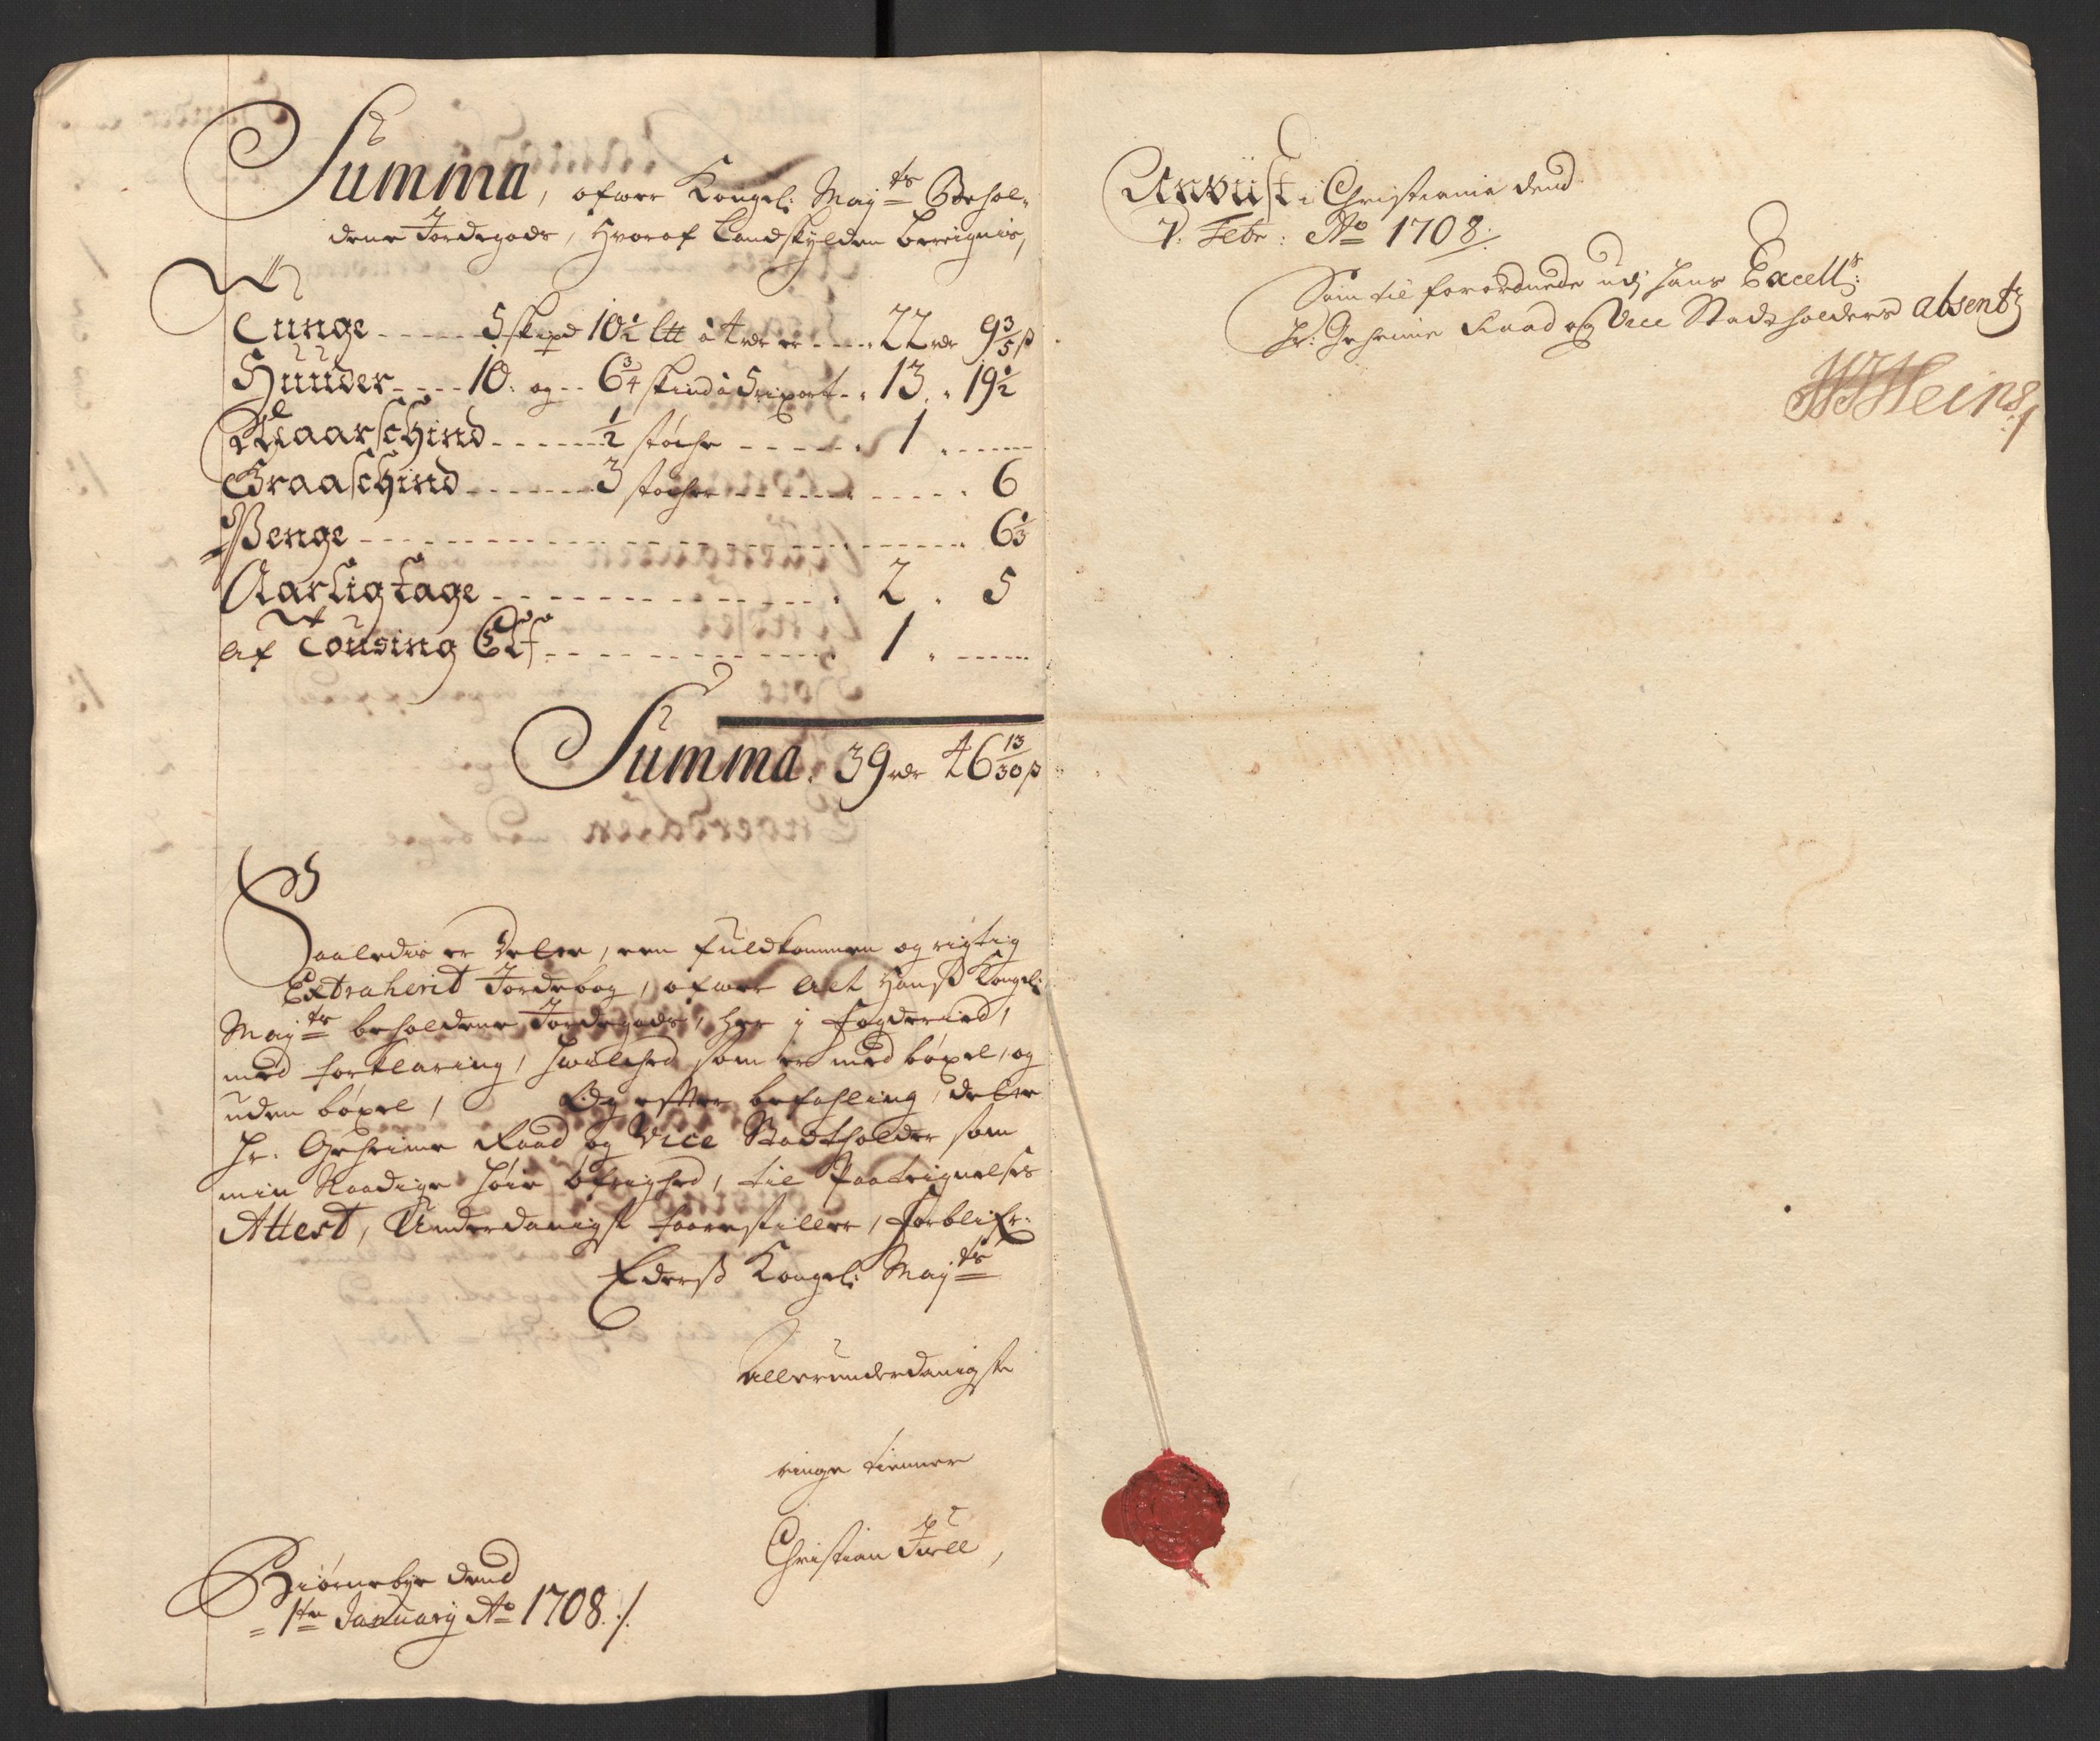 Summa, ofwer Kongel: May:ts Behol-
dene Jordegods, hvoraf Landskylden bereignis,
Tunge - - - - 5 skipd 10½ Ltt â 4 rdr er - - - - 22 rdr 9 3/5 ß
Huuder - - - 10: og - - 6¾ skind â 5 - - 13 . 19½
Maarschind - - - - - ½ støche - - - - - 1 . - - - -
Graaschind - - - - - 3 støcher - - - - - - - - - . 6
Penge - - - - - - - - - - - - - - - - - - - - . 6⅓
Aarlig tage - - - - - - - - - - - - . 2 . 5
af Tousing Elf - - - - - - - - - - - . 1 . - - - -
Summa . 39 rdr 46 13/30 ß
Saaledis er dette, een fuldkommen og rigtig
Extraherit Jordebog, ofwer alt Hanß Kongel:
May:ts beholdene Jordegods, her i fogderied,
med forklaring, hwilched som er med bøxel, og
uden bøxel, Og effter befahling, dette
Hr. Geheime Raad og Vice Stadtholder som
min Naadige høie Øfrighed, til Paateignelses
Attest, Underdanigst foorestiller, forblifr.
Ederß Kongel: May:ts
allerunderdanigste
ringe tienner
Christian Juell,
Biørnebye dend
1te January Ao 1708 ./.
Anvüst i Christiania dend
7. Febr: Ao 1708.
Som til forordnede udj hans Excell:s
Hr: Geheime Raad og Vice Stadtholders absentz